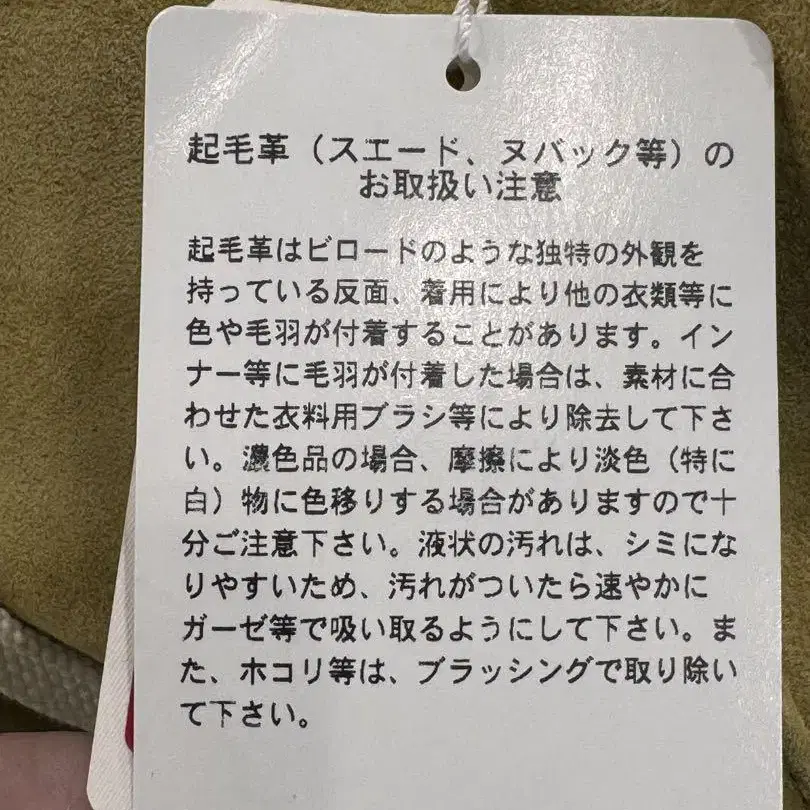 起毛革（スエード、ヌバック等）の
お取扱い注意
起毛革はビロードのような独特の外観を
持っている反面、着用により他の衣類等に
色や毛羽が付着することがあります。イン
ナー等に毛羽が付着した場合は、素材に合
わせた衣料用ブラシ等により除去して下さ
い。濃色品の場合、摩擦により淡色（特に
白）物に色移りする場合がありますので十
分ご注意下さい。液状の汚れは、シミにな
りやすいため、汚れがついたら速やかに
ガーゼ等で吸い取るようにして下さい。ま
た、ホコリ等は、ブラッシングで取り除い
て下さい。